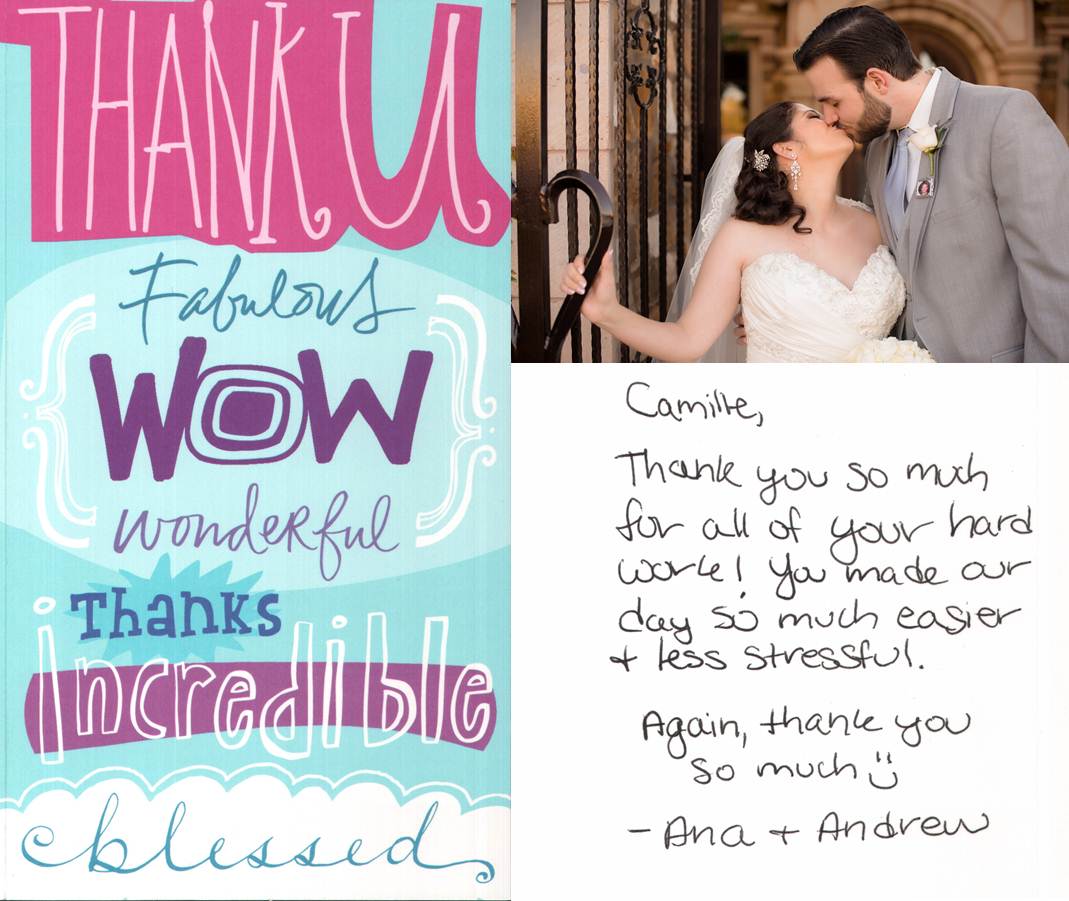 THANK U
Fabulous
WOW
wonderful
Thanks
incredible
blessed
Camille,
Thank you so much
for all of your hard
work! You made our
day so much easier
+ less stressful.
Again, thank you
so much
- Ana + Andrew